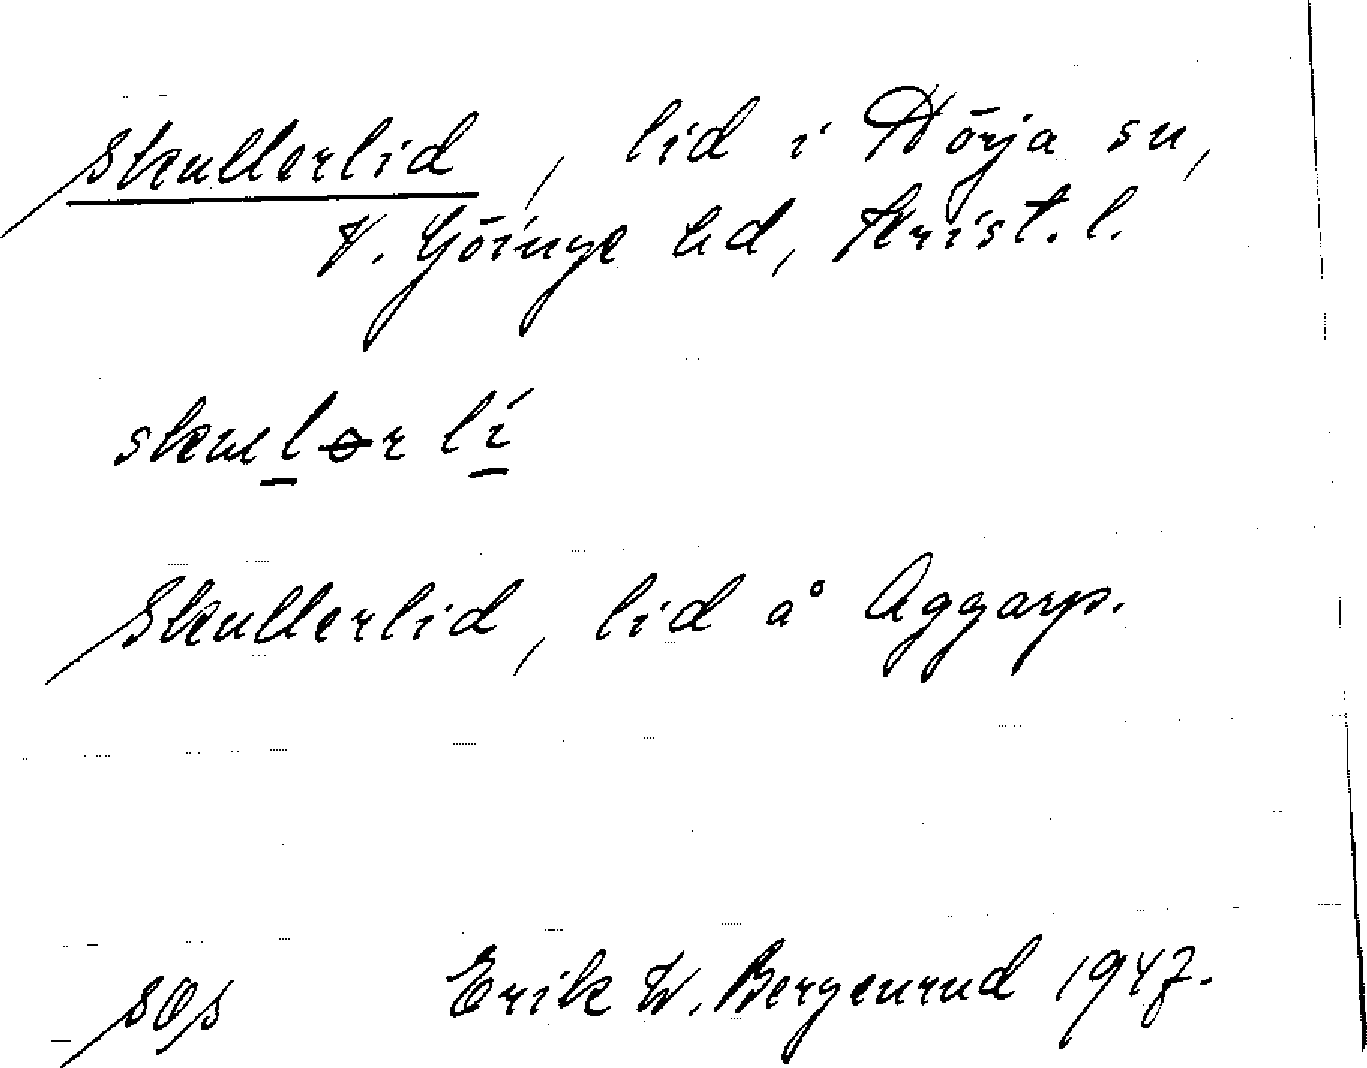 Skullerlid, lid i Hörja sn,
V. Göinge hd, Krist. l.
Skullerlid, lid å Aggarp.
Erik W. Bergenrud 1947.